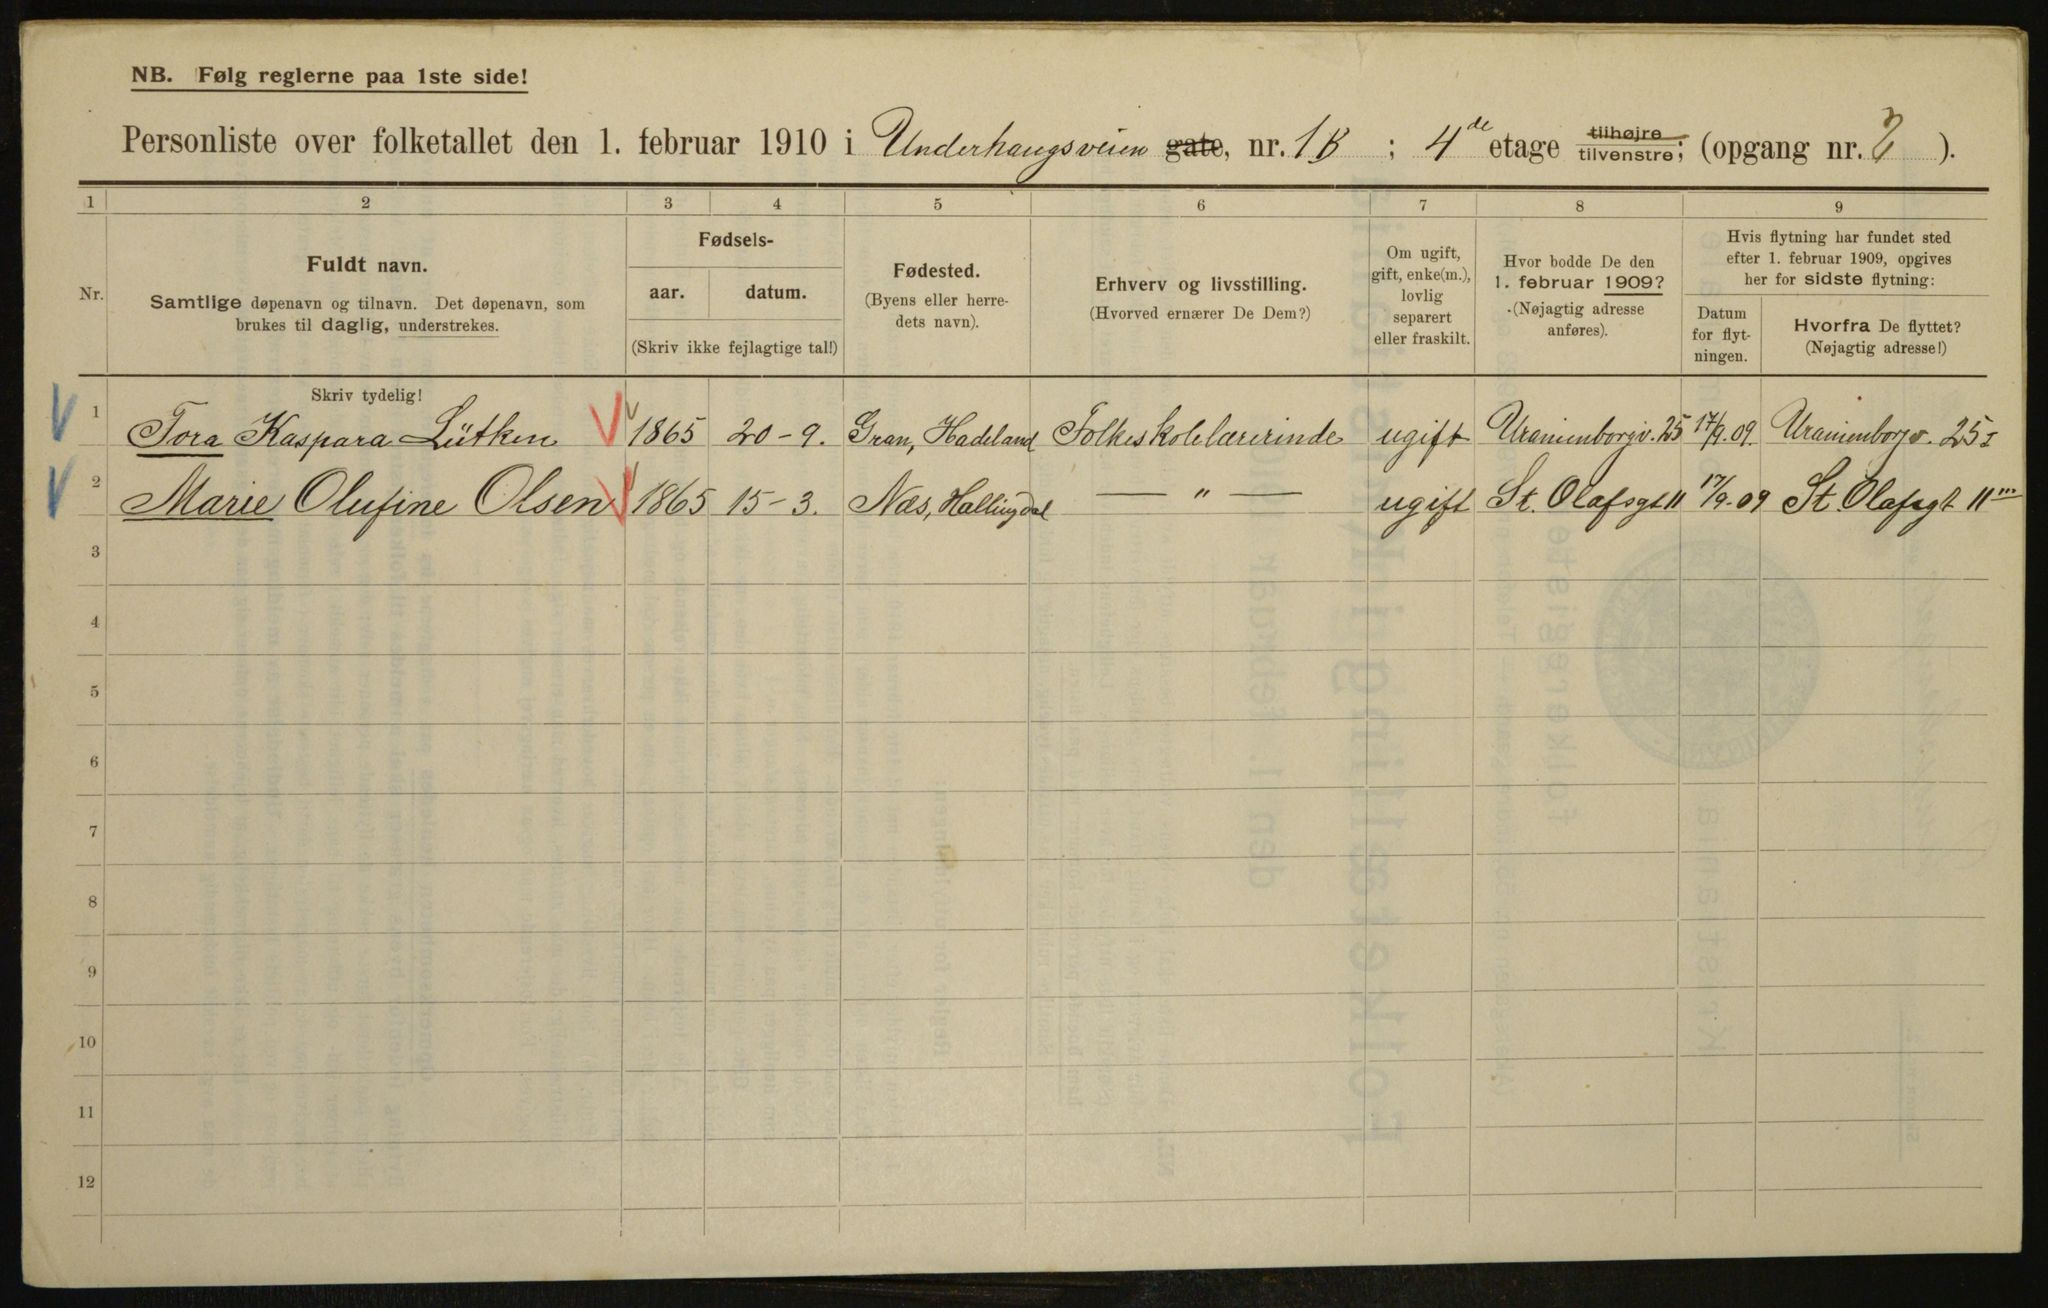 NB. Følg reglerne paa 1ste side!
Personliste over folketallet den 1. februar 1910 i Underhaugsveien gate, nr. 1B ; 4de etage tilhøjre tilvenstre; (opgang nr. 2 ).
1 2 3 4 5 6 7 8 9
Nr.
Fuldt navn.
Samtlige døpenavn og tilnavn. Det døpenavn, som
brukes til daglig, understrekes.
Fødsels-
aar. datum.
(Skriv ikke fejlagtige tal!)
Fødested.
(Byens eller herre-
dets navn).
Erhverv og livsstilling.
(Hvorved ernærer De Dem?)
Om ugift,
gift, enke(m.),
lovlig
separert
eller fraskilt.
Hvor bodde De den
1. februar 1909?
(Nøjagtig adresse
anføres).
Hvis flytning har fundet sted
efter 1. februar 1909, opgives
her for sidste flytning:
Datum
for flyt-
ningen.
Hvorfra De flyttet?
(Nøjagtig adresse!)
Skriv tydelig!
1 Tora Kaspara Lütken 1865 20-9. Gran, Hadeland Folkeskolelærerinde ugift Uranienborgv. 25 17/9.09. Uranienborgv. 25 I
2 Marie Olufine Olsen 1865 15-3. Næs, Hallingdal — " — ugift St. Olafsgt 11 17/9.09 St. Olafsgt 11 III
3
4
5
6
7
8
9
10
11
12